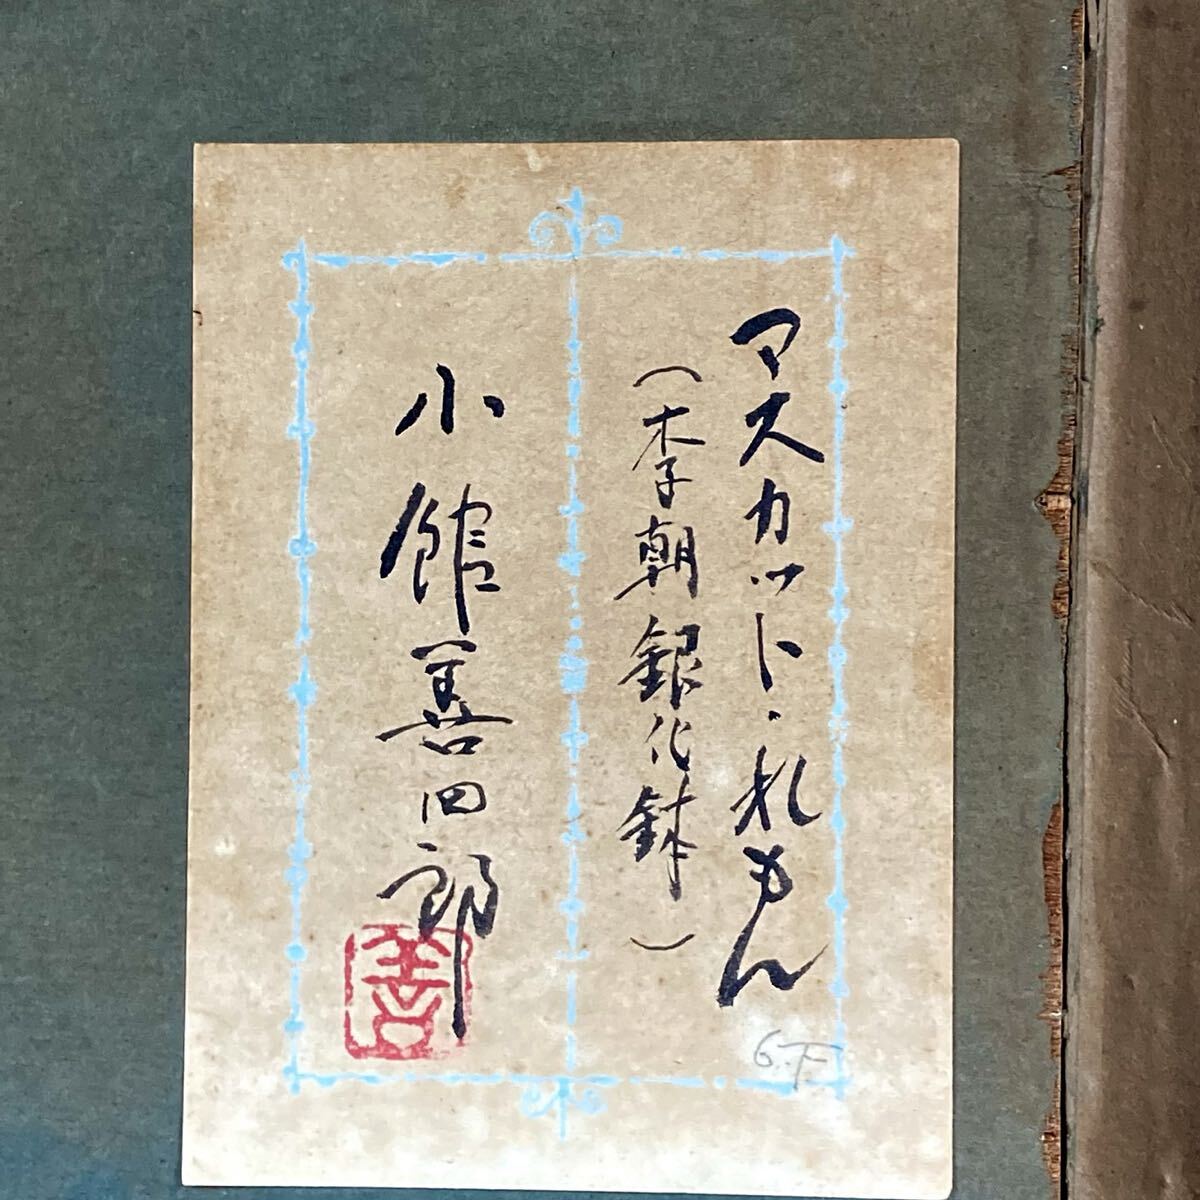 マスカット・れもん
（李朝銀化鉢）
小館善四郎
善
6.F